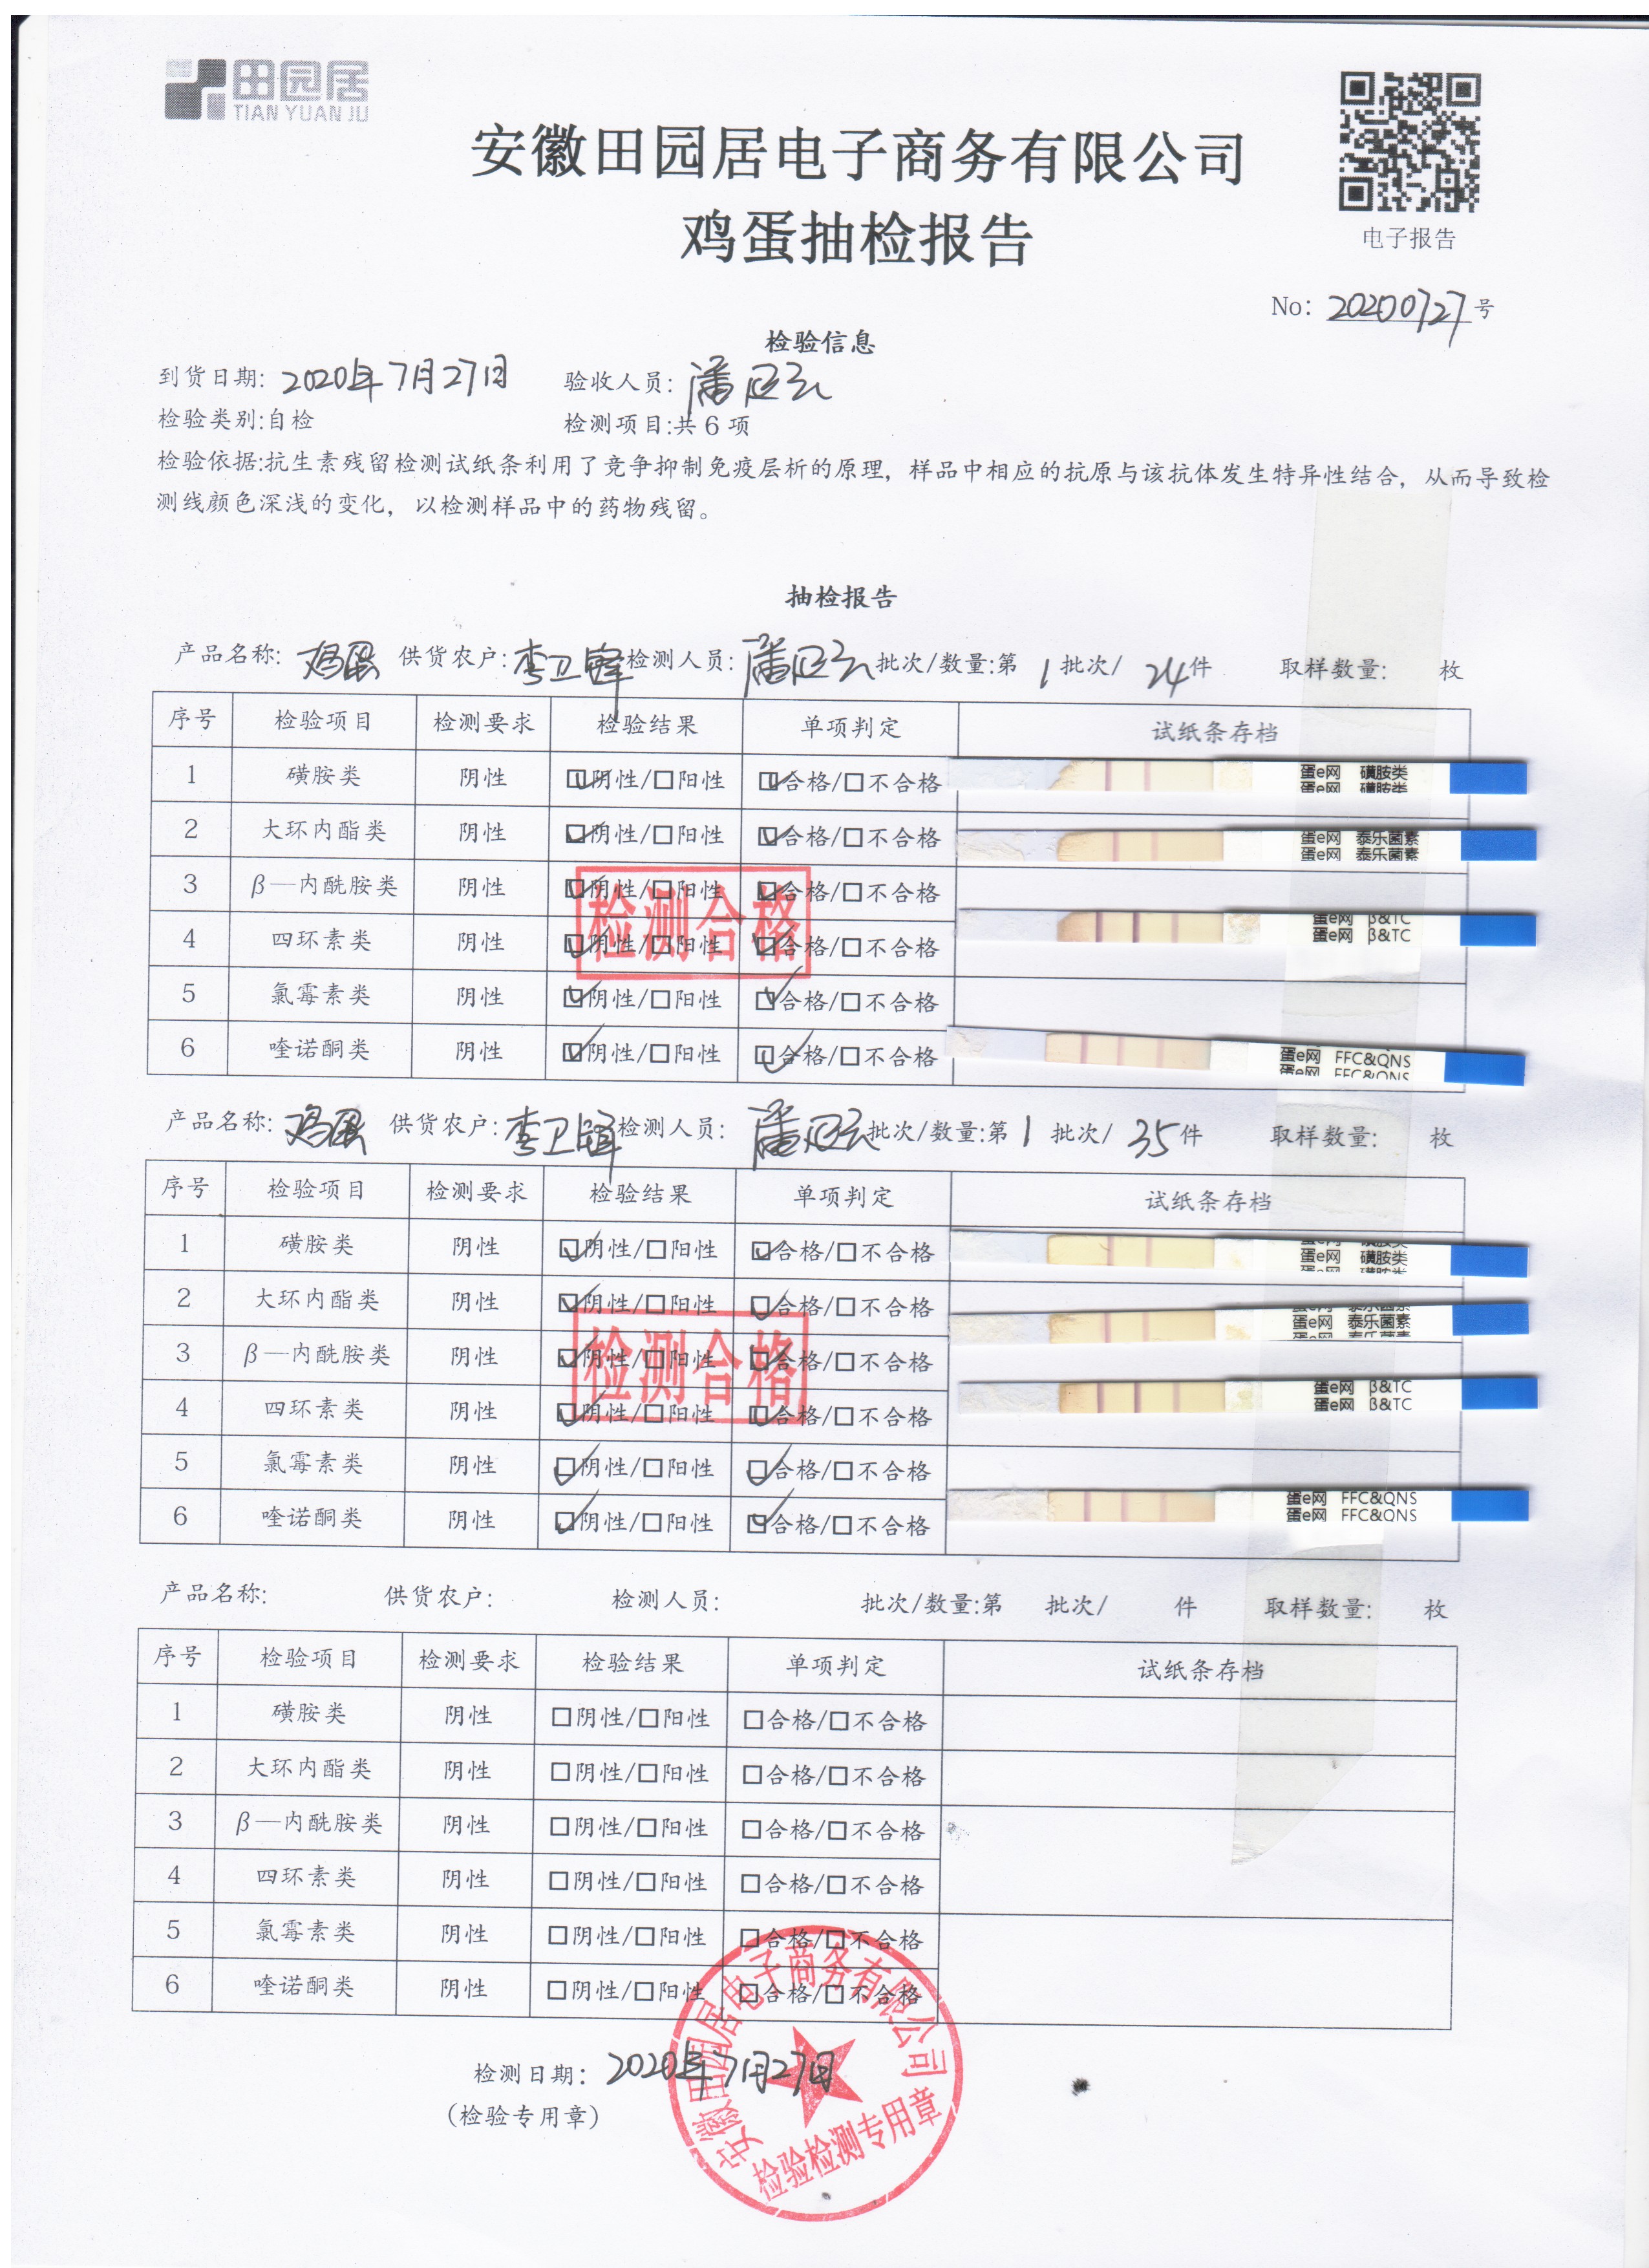 田园居
TIAN YUAN JU
安徽田园居电子商务有限公司
鸡蛋抽检报告
电子报告
No: 20200727号
检验信息
到货日期: 2020年7月27日 验收人员: 潘
检验类别:自检 检测项目:共6项
检验依据:抗生素残留检测试纸条利用了竞争抑制免疫层析的原理，样品中相应的抗原与该抗体发生特异性结合，从而导致检
测线颜色深浅的变化，以检测样品中的药物残留。
抽检报告
产品名称: 鸡蛋 供货农户: 李卫锋 检测人员: 潘 批次/数量:第1批次/24件 取样数量: 枚
序号 检验项目 检测要求 检验结果 单项判定 试纸条存档
1 磺胺类 阴性 ☑阴性/□阳性 ☑合格/□不合格 蛋e网 磺胺类
蛋e网 磺胺类
2 大环内酯类 阴性 ☑阴性/□阳性 ☑合格/□不合格 蛋e网 泰乐菌素
蛋e网 泰乐菌素
3 β—内酰胺类 阴性 ☑阴性/□阳性 ☑合格/□不合格 蛋e网 β&TC
4 四环素类 阴性 ☑阴性/□阳性 ☑合格/□不合格 蛋e网 β&TC
检测合格
5 氯霉素类 阴性 ☑阴性/□阳性 ☑合格/□不合格
6 喹诺酮类 阴性 ☑阴性/□阳性 ☑合格/□不合格 蛋e网 FFC&QNS
蛋e网 FFC&QNS
产品名称: 鸡蛋 供货农户: 李卫锋 检测人员: 潘 批次/数量:第1批次/35件 取样数量: 枚
序号 检验项目 检测要求 检验结果 单项判定 试纸条存档
1 磺胺类 阴性 ☑阴性/□阳性 ☑合格/□不合格 蛋e网 磺胺类
2 大环内酯类 阴性 ☑阴性/□阳性 ☑合格/□不合格 蛋e网 泰乐菌素
3 β—内酰胺类 阴性 ☑阴性/□阳性 ☑合格/□不合格 蛋e网 β&TC
4 四环素类 阴性 ☑阴性/□阳性 ☑合格/□不合格 蛋e网 β&TC
检测合格
5 氯霉素类 阴性 ☑阴性/□阳性 ☑合格/□不合格
6 喹诺酮类 阴性 ☑阴性/□阳性 ☑合格/□不合格 蛋e网 FFC&QNS
蛋e网 FFC&QNS
产品名称: 供货农户: 检测人员: 批次/数量:第 批次/ 件 取样数量: 枚
序号 检验项目 检测要求 检验结果 单项判定 试纸条存档
1 磺胺类 阴性 □阴性/□阳性 □合格/□不合格
2 大环内酯类 阴性 □阴性/□阳性 □合格/□不合格
3 β—内酰胺类 阴性 □阴性/□阳性 □合格/□不合格
4 四环素类 阴性 □阴性/□阳性 □合格/□不合格
5 氯霉素类 阴性 □阴性/□阳性 □合格/□不合格
6 喹诺酮类 阴性 □阴性/□阳性 □合格/□不合格
检测日期: 2020年7月27日
(检验专用章)
安徽田园居电子商务有限公司
检验检测专用章